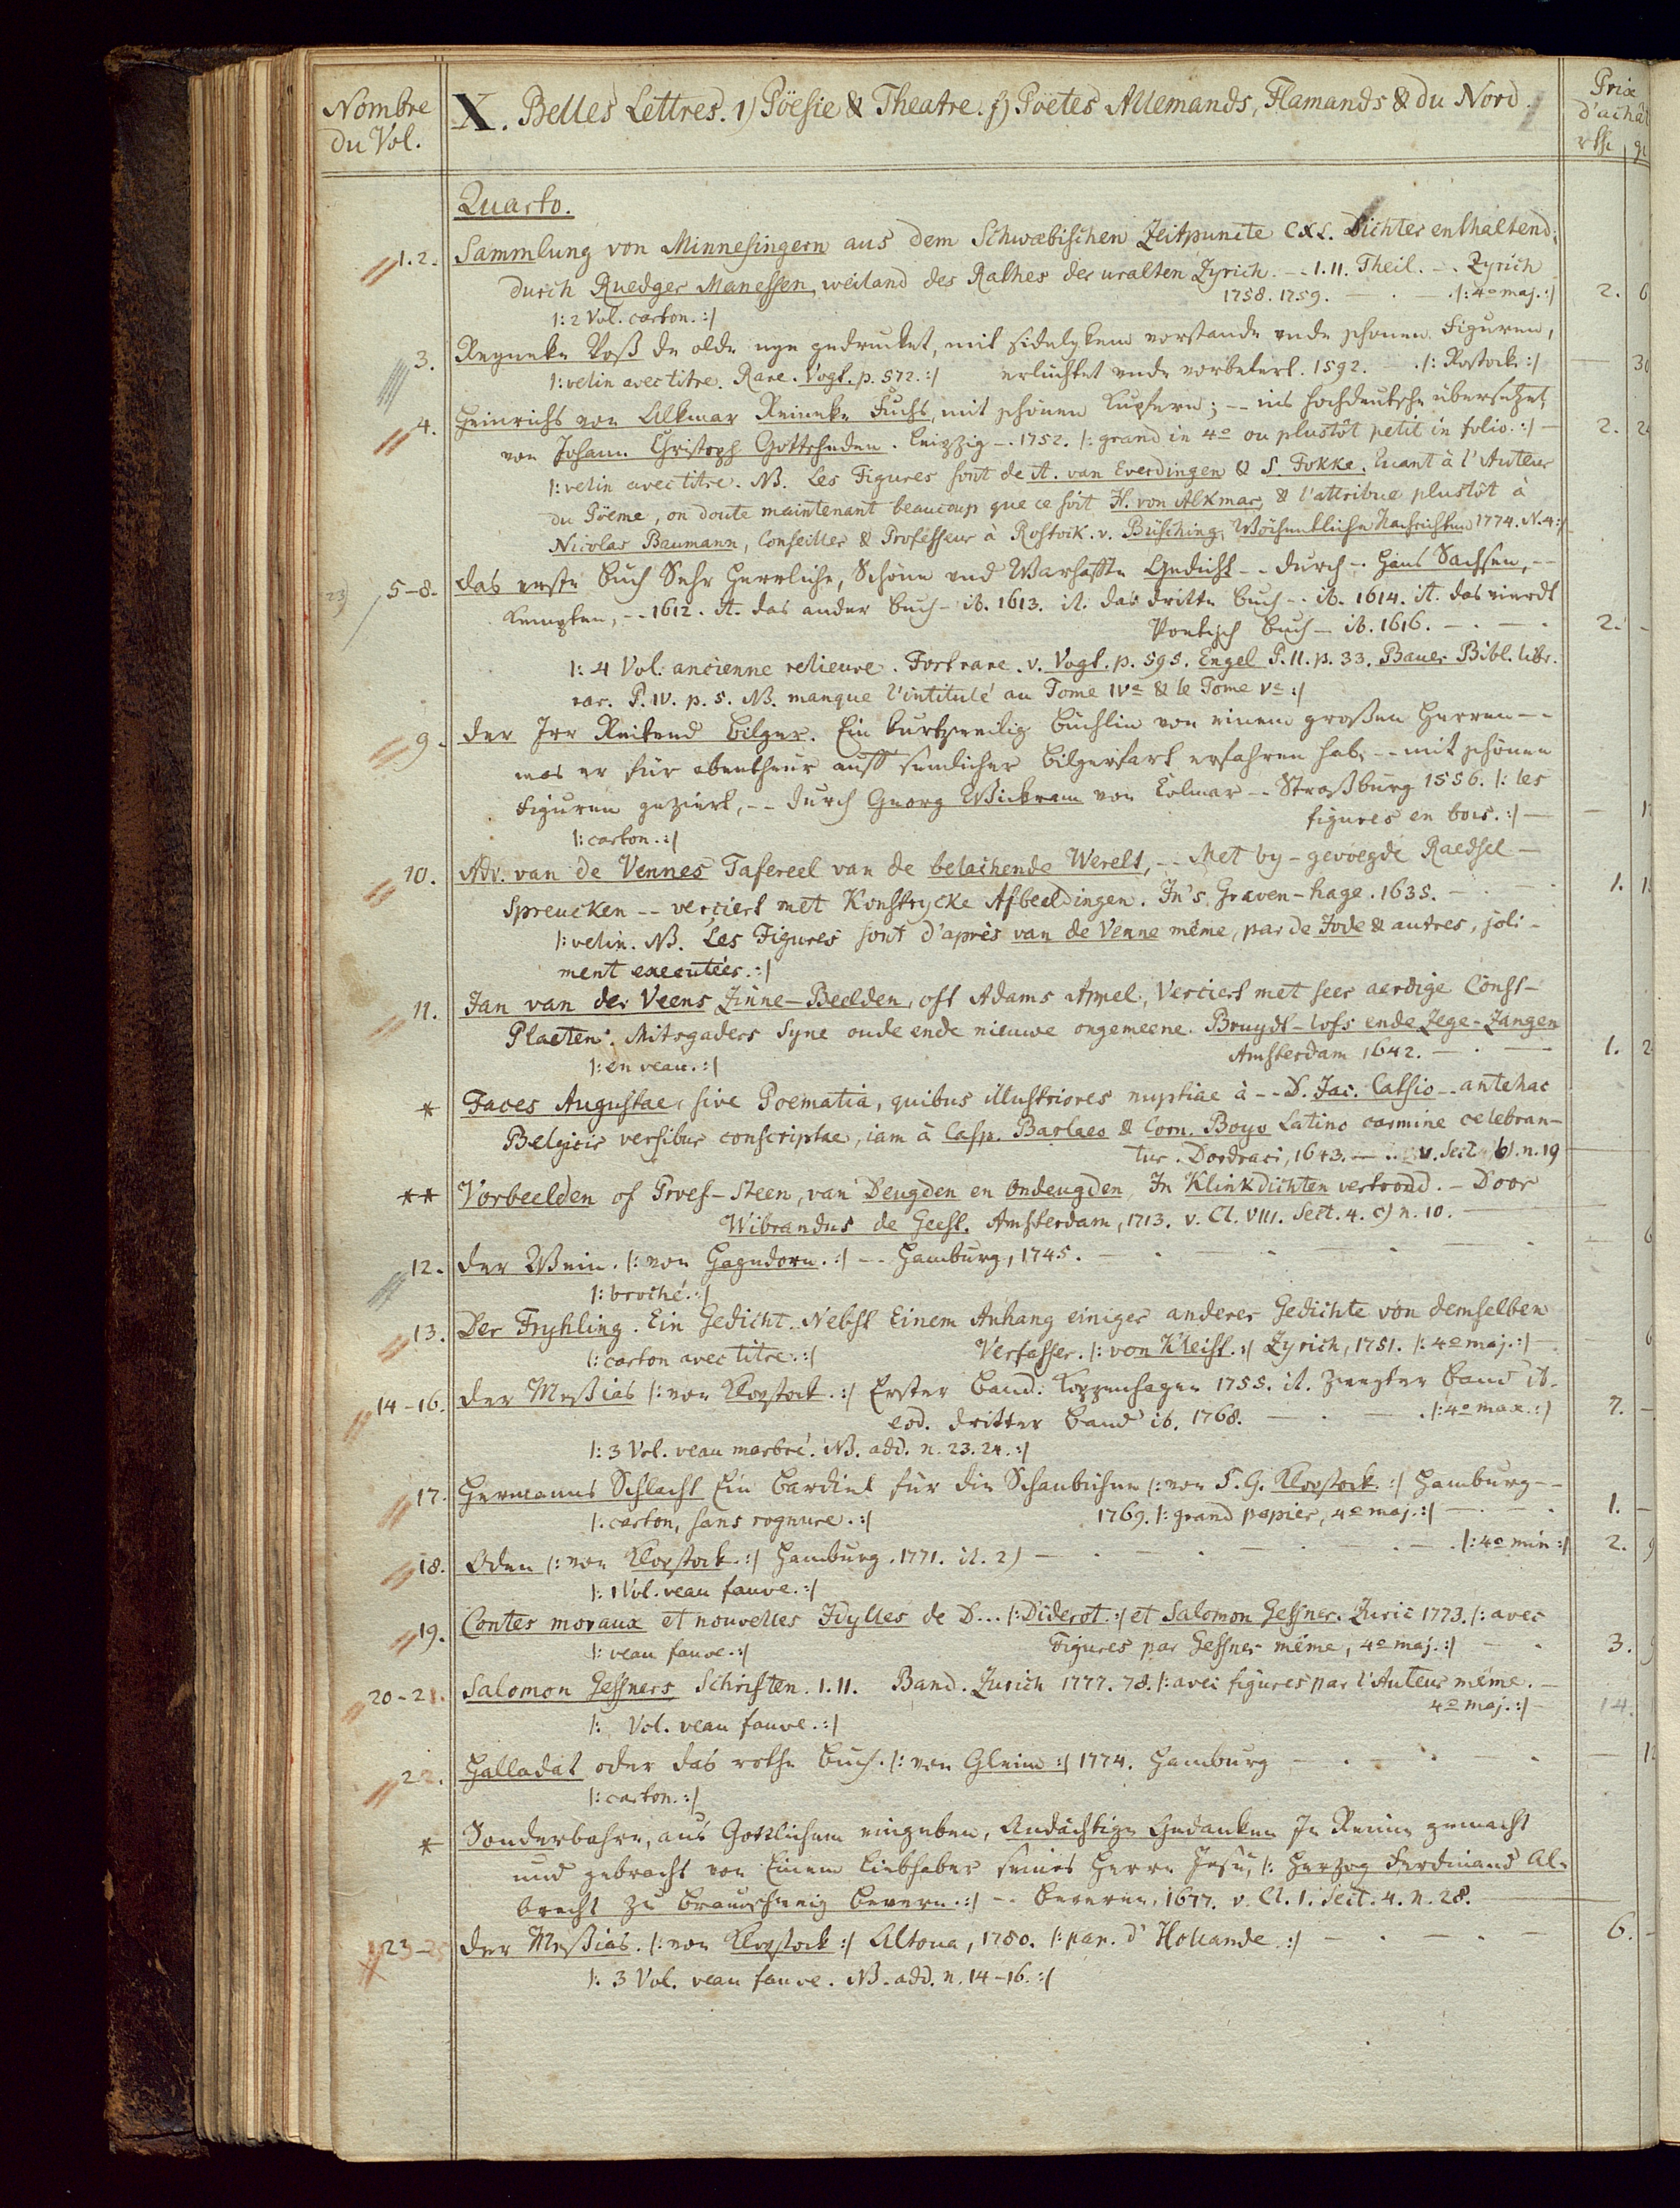 Nombre du Vol.
X. Belles Lettres. 1) Pöesie & Theatre. f) Poëtes Allemands, Flamands & du Nord.
Prix d'achât
rthl. gr
Quarto.
1. 2. Sammlung von Minnesingern aus dem Schwæbischen Zeitpuncte CXL. Dichter enthaltend;
durch Ruedger Manessen, weiland des Rathes der uralten Zyrich. -- I. II. Theil. -- Zyrich
1758. 1759. — . — . |: 4o maj. :| 2. 6
|: 2 Vol. carton. :|
3. Reyneke Voß de olde nye gedrucket, mit sidelykem vorstande unde schonen Figuren,
|: velin avec titre. Rare. Vogt. p. 572. :| erlüchtet unde vorbetert. 1592. — . |: Rostock :| — 30
4. Heinrichs von Alkmar Reineke Fuchs, mit schönen Kupfern; -- ins hochdeutsche übersetzet,
von Johann Christoph Gottscheden. Leipzig -. 1752. |: grand in 4o ou plustôt petit in folio. :| — 2. 24
|: velin avec titre. NB. Les Figures sont de A. van Everdingen & S. Fokke. Quant à l'Auteur
du Pöeme, on doute maintenant beaucoup que ce soit H. von Alkmar, & l'attribue plustôt à
Nicolas Baumann, Conseiller & Professeur à Rostock. v. Büsching, Wöchentliche Nachrichten 1774. N. 4 :|
23) 5-8. das erste Buch Sehr Herrliche, Schöne und Warhaffte Gedicht -- durch -- Hans Sachsen, --
Kempten, -- 1612. it. das ander Buch - ib. 1613. it. das dritte Buch -- ib. 1614. it. das vierdt
Poetisch Buch - ib. 1616. — . — . 2. -
|: 4 Vol. ancienne relieure. Fort rare. v. Vogt. p. 595. Engel P. II. p. 33. Bauer Bibl. libr.
rar. P. IV. p. 5. NB. manque l'intitulé au Tome IVe & le Tome Ve :|
9. der Irr Reitend Bilger. Ein kurtzweilig büchlin von einem großen Herren --
was er für abentheur auff semlicher Bilgerfart erfahren hab, -- mit schönen
Figuren geziert, -- durch Georg Wickram von Colmar -- Straßburg 1556. |: les
figures en bois. :| —
|: carton. :|
10. Adr. van de Vennes Tafereel van de belachende Werelt, -- Met by-gevoegde Raedsel —
Spreucken -- verciert met Konstrycke Afbeeldingen. In's Graven-hage. 1635. — . — . 1.
|: velin. NB. Les Figures sont d'après van de Venne même, par de Jode & autres, joli-
ment executées. :|
11. Jan van der Veens Zinne-Beelden, oft Adams Appel, Verciert met seer aerdige Const-
Plaeten. Mitsgaders Syne oude ende nieuwe ongemeene. Bruydt-lofs ende Zege-Zangen
Amsterdam 1642. — . — 1. 2
|: en veau. :|
* Faces Augustae, sive Poematia, quibus illustriores nuptiae à -- D. Jac. Catsio -- antehac
Belgicis versibus conscriptae, iam à Casp. Barlaeo & Corn. Boyo Latino carmine celebran-
tur. Dordraci, 1643. — . v. Sect. b). n. 19
** Vorbeelden of Proef-Steen, van Deugden en Ondeugden, In Klinkdichten vertoond. — Door
Wibrandus de Geest. Amsterdam, 1713. v. Cl. VIII. Sect. 4. c) n. 10.
12. der Wein. |: von Hagedorn. :| -- Hamburg, 1745. — . — . — . — . 6
|: broché. :|
13. Der Fryhling. Ein Gedicht. Nebst Einem Anhang einiger anderer Gedichte von demselben
|: carton avec titre. :| Verfasser. |: von Kleist. :| Zyrich, 1751. |: 4o maj. :| — 6
14-16. der Meßias |: von Klopstock. :| Erster Band. Koppenhagen 1755. it. Zweyter Band ib.
eod. dritter Band ib. 1768. — . — . |: 4o max. :| 7. -
|: 3 Vol. veau marbré. NB. add. n. 23. 24. :|
17. Hermanns Schlacht Ein Bardiet für die Schaubühne |: von F. G. Klopstock. :| Hamburg --
|: carton, sans rognure. :| 1769. |: grand papier, 4o maj. :| — . — . 1. -
18. Oden |: von Klopstock. :| Hamburg. 1771. it. 2) — . — . — . |: 4o min :| 2. 9
|: 1 Vol. veau fauve. :|
19. Contes moraux et nouvelles Idylles de D... |: Diderot. :| et Salomon Gessner. Zuric 1773. |: avec
|: veau fauve. :| Figures par Gessner même, 4o maj. :| — . 3. 9
20-21. Salomon Gessners Schriften. I. II. Band. Zurich 1777. 78. |: avec figures par l'Auteur même. —
4o maj. :| — 14.
|: Vol. veau fauve. :|
22. Halladat oder das rothe Buch. |: von Gleim :| 1774. Hamburg — . — . — 12
|: carton. :|
* Sonderbahre, aus Göttlichem eingeben, Andächtige Gedanken In Reime gemacht
und gebracht von Einem Liebhaber seines Herrn Jesu, |: Herzog Ferdinand Al-
brecht zu Braunschweig Bevern. :| -- Bevern, 1677. v. Cl. I. Sect. 4. n. 28.
23-25 der Meßias. |: von Klopstock :| Altona, 1780. |: pap. d'Hollande. :| — . — . — 6. -
|: 3 Vol. veau fauve. NB. add. n. 14-16. :|